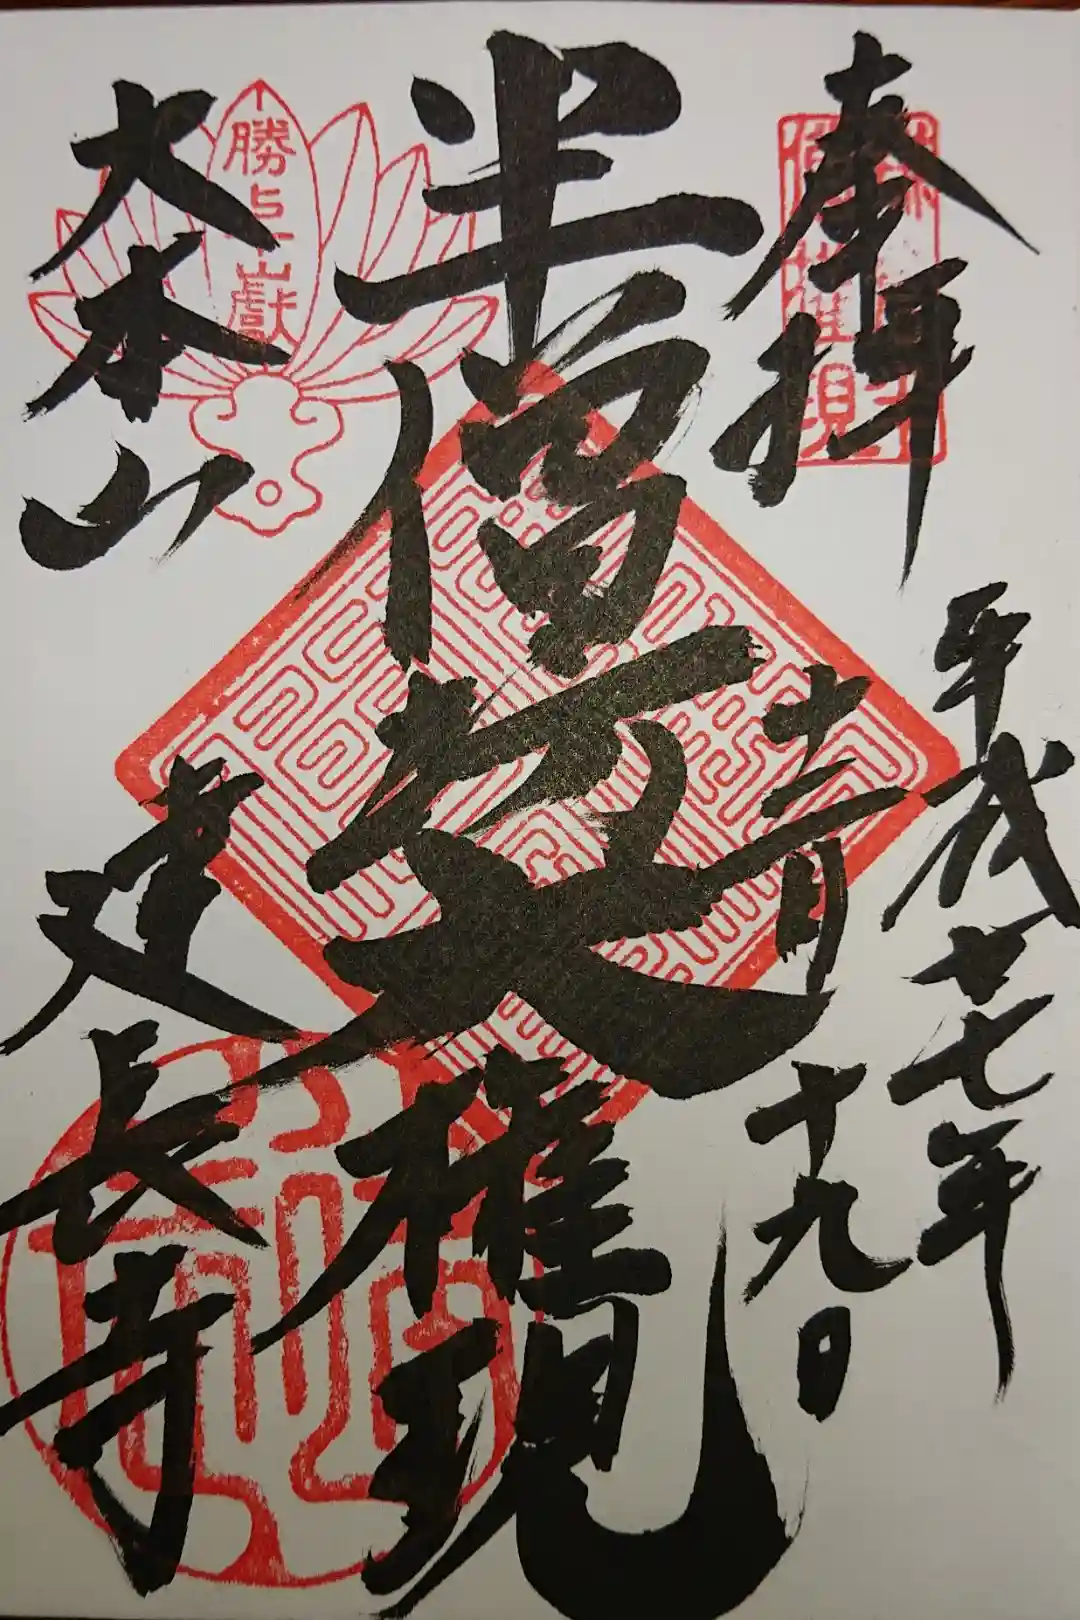 奉拝
平成廿七年
十二月十九日
半僧坊大権現
勝上嶽
大本山
建長寺